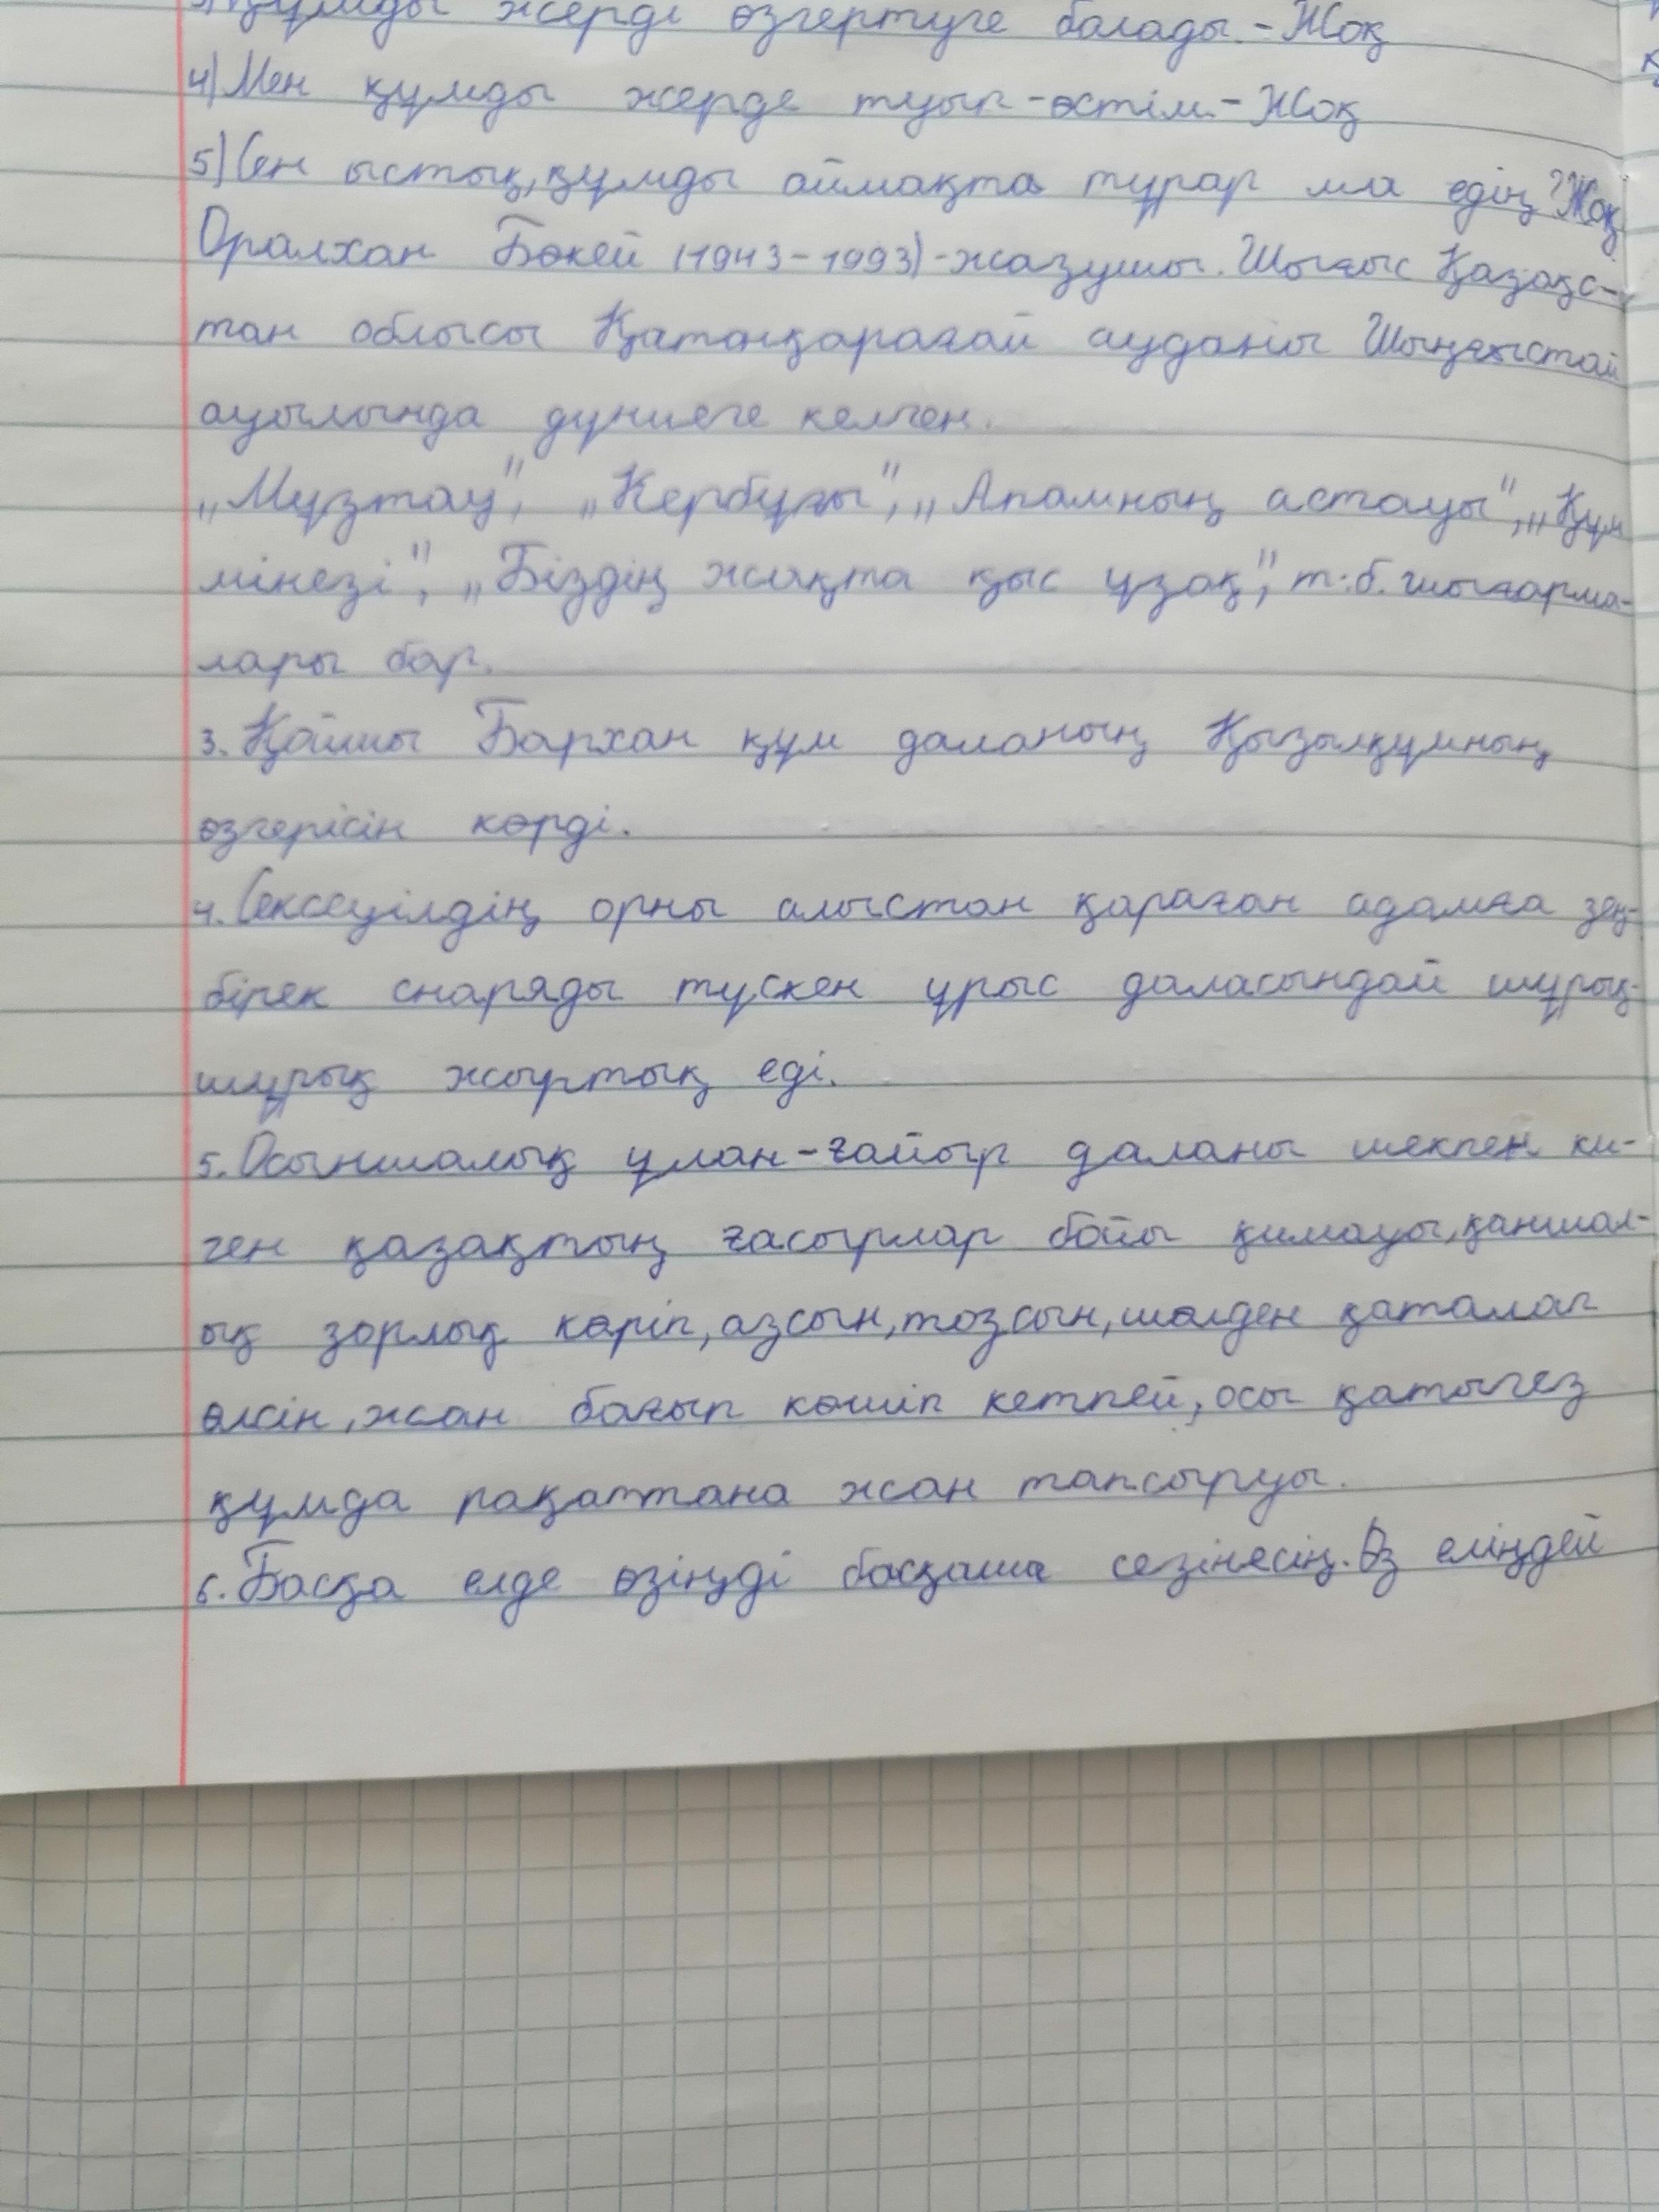 құмды жерді өзгертуге болады. - Жоқ
4) Мен құмды жерде туып-өстім. - Жоқ
5) Сен ыстық, құмды аймақта тұрар ма едің? Жоқ
Оралхан Бөкей (1943-1993) - жазушы. Шығыс Қазақс-
тан облысы Қатонқарағай ауданы Шыңғыстай
ауылында дүниеге келген.
„Мұзтау", „Кербұғы", „Апамның астауы", „Құм
мінезі", „Біздің жақта қыс ұзақ", т.б. шығарма-
лары бар.
3. Қойшы Бархан құм даланың Қызылқұмның
өзгерісін көрді.
4. Сексеуілдің орны алыстан қараған адамға зең-
бірек снаряды түскен ұрыс даласындай шұрық-
шұрық жыртық еді.
5. Осыншалық ұлан-ғайыр даланы шекпен ки-
ген қазақтың ғасырлар бойы қимауы, қаншал-
ық зорлық көріп, азсын, тозсын, шөлден қаталап
өлсін, жан бағып көшіп кетпей, осы қатыгез
құмда рақаттана жан тапсыруы.
6. Басқа елде өзіңді басқаша сезінесің. Өз еліңдей